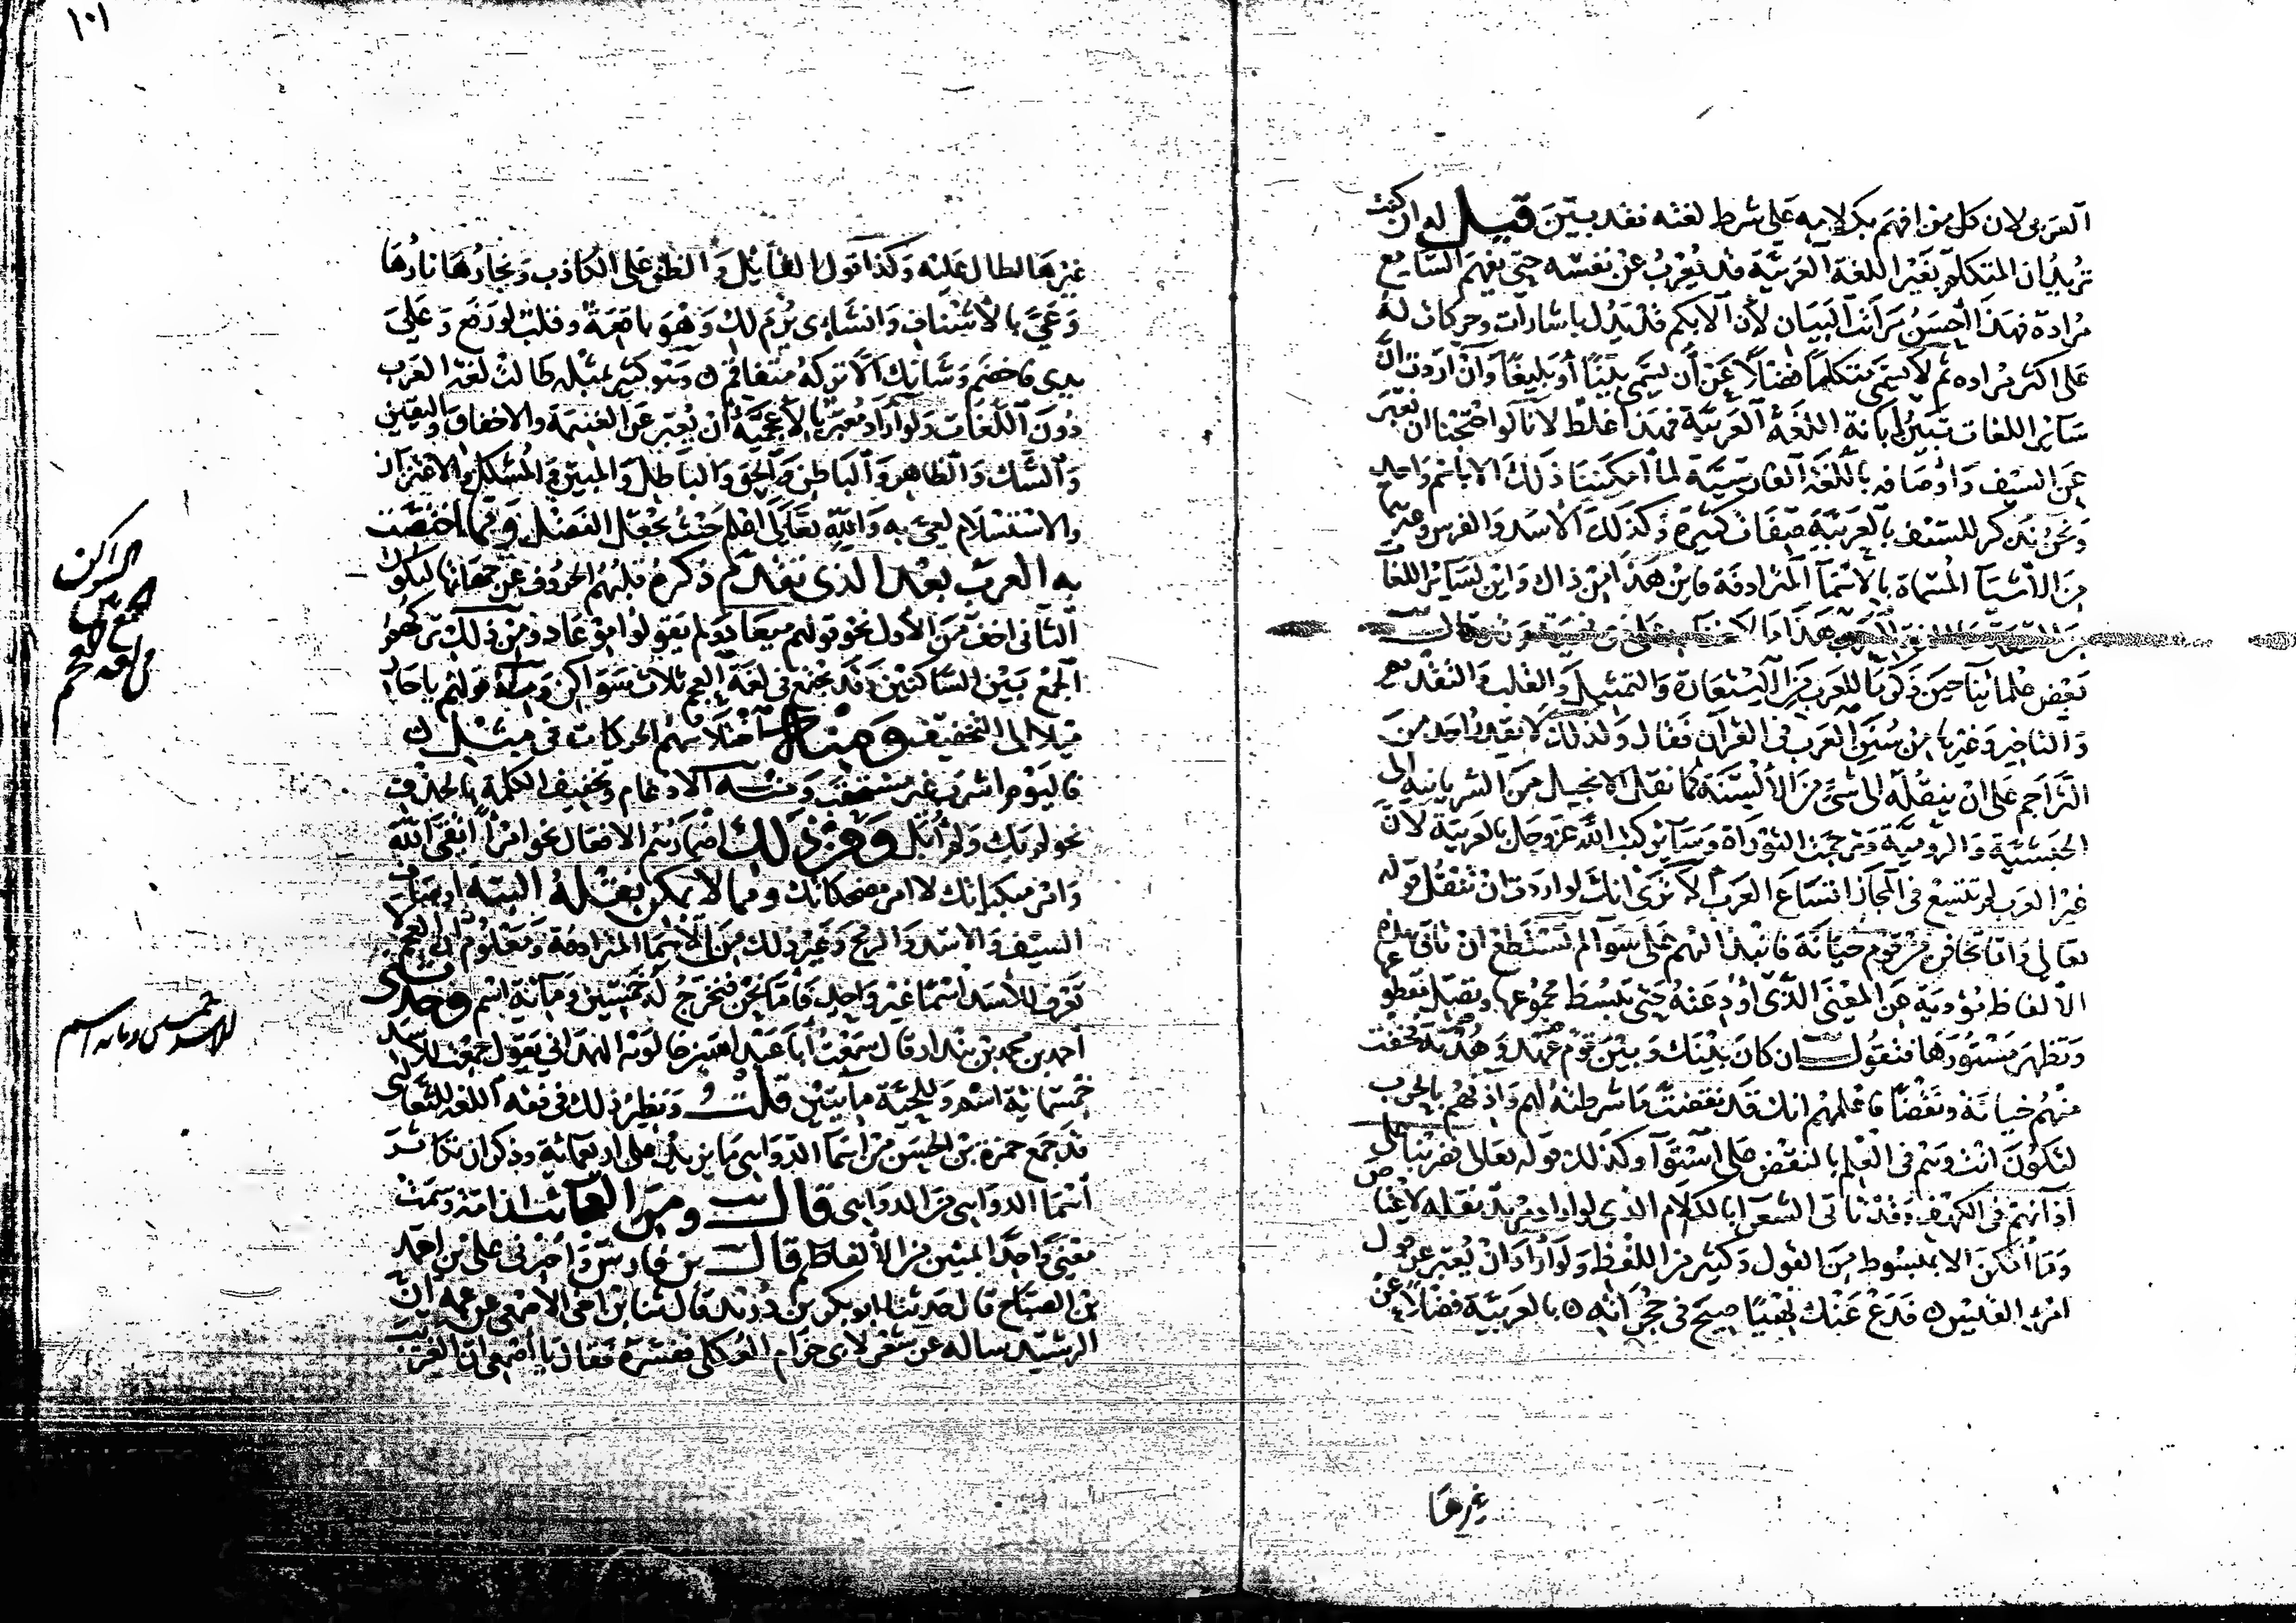 العربى لان كل من افهم بكلامه على شرط لغته فقد بيّن قيل له ان كنت
تريد ان المتكلم بغير اللغة العربية قد يعرب عن نفسه حتى يفهم السامع
مراده فهذا اخسّ مراتب البيان لان الابكم قد يدل باشارات وحركات له
على اكثر مراده ثم لا يسمى متكلما فضلا عن ان يسمى بيّنا او بليغا وان اردت ان
سائر اللغات تبين ابانة اللغة العربية فهذا غلط لانا لو احتجنا ان نعبّر
عن السيف واوصافه باللغة الفارسية لما امكننا ذلك الا باسم واحد
ونحن نذكر للسيف بالعربية صفات كثيرة وكذلك الاسد والفرس وغيرهما
من الاشيا المسماة بالاسما المترادفة فاين هذا من ذاك واين لسائر اللغات
من السعة ما للغة العرب هذا ما لا خفا به على ذى نهية قال
بعض علمائنا حين ذكر ما للعرب من الاستعارة والتمثيل والقلب والتقديم
والتاخير وغيرها من سنن العرب فى القرآن فقال ولذلك لا يقدر احد من
التراجم على ان ينقله الى شئ من الالسنة كما نقل الانجيل من السريانية الى
الحبشية والرومية وترجمت التوراة وسائر كتب الله عز وجل بالعربية لان
غير العرب لم تتسع فى المجاز اتساع العرب الا ترى انك لو اردت ان تنقل قوله
تعالى واما تخافن من قوم خيانة فانبذ اليهم على سوا لم تستطع ان تاتى بهذه
الالفاظ مؤدية عن المعنى الذى اودعته حتى تبسط مجموعها وتصل مقطوعها
وتظهر مستورها فتقول ان كان بينك وبين قوم عهد وهدنة فخفت
منهم خيانة ونقضا فاعلمهم انك قد نقضت ما شرطته لهم واذنهم بالحرب
لتكون انت وهم فى العلم بالنقض على استوا وكذلك قوله تعالى فضربنا على
آذانهم فى الكهف وقد تاتى الشعرا بالكلام الذى لو اراد مريد نقله لاعتاص
وما امكن الا بمبسوط من القول وكثير من اللفظ ولو اراد ان يعبر عن قول
امرئ القيس فدع عنك نهبا صيح فى حجراته بالعربية فضلا عن
غيرها
١٠١
غيرها لطال عليه وكذا قول القائل والظن على الكاذب ونجارها نارها
وعىّ بالاسناف وانشاى يرم لك وهو باقعة وقلب لو رفع وعلى
يدى فاخضم وشانك الا تركه متفاقم وهو كثير بمثله طالت لغة العرب
دون اللغات ولو اراد معبر بالاعجمية ان يعبر عن الغنيمة والاخفاق واليقين
والشك والظاهر والباطن والحق والباطل والمبين والمشكل والاعتزاز
والاستسلام لعىّ به والله تعالى اعلم حيث يجعل الفضل ومما اختصت
به العرب بعد الذى تقدم ذكره قلبهم الحروف عن جهاتها ليكون
الثانى اخف من الاول نحو قولهم ميعاد ولم يقولوا موعاد ومن ذلك تركهم
الجمع بين الساكنين وقد يجتمع فى لغة العجم ثلاث سواكن ومنه قولهم يا حار
ميلا الى التخفيف ومنه اختلاسهم الحركات فى مثل
فاليوم اشرب غير مستحقب ومنه الادغام وتخفيف الكلمة بالحذف
نحو لم يك ولم ابل ومن ذلك اضمارهم الافعال نحو امرأ اتقى الله
وامر مبكياتك لا امر مضحكاتك ومما لا يمكن نقله البتة اوصاف
السيف والاسد والرمح وغير ذلك من الاسما المترادفة ومعلوم ان العجم لا
تعرف للاسد اسما غير واحد فاما نحن فنخرج له خمسين ومائة اسم وحدثنى
احمد بن محمد بن بندار قال سمعت ابا عبد الله بن خالويه الهمذانى يقول جمعت للاسد
خمسمائة اسم وللحية مايتين قلت ونظير ذلك فى فقه اللغة للثعالبى
قد جمع حمزة بن الحسن من اسما الدواهى ما يزيد على اربعمائة وذكر ان تكاثر
اسما الدواهى من الدواهى قال ومن العجائب ان امة وسمت
معنى واحدا بمئين من الالفاظ قال بن فارس واخبرنى على بن احمد
بن الصباح قال حدثنا ابو بكر بن دريد قال ثنا بن اخى الاصمعى عن عمه ان
الرشيد ساله عن شعر لابى حزام العكلى ففسره فقال يا اصمعى ان الغريب
السواكن
للاسد خمسين ومائة اسم